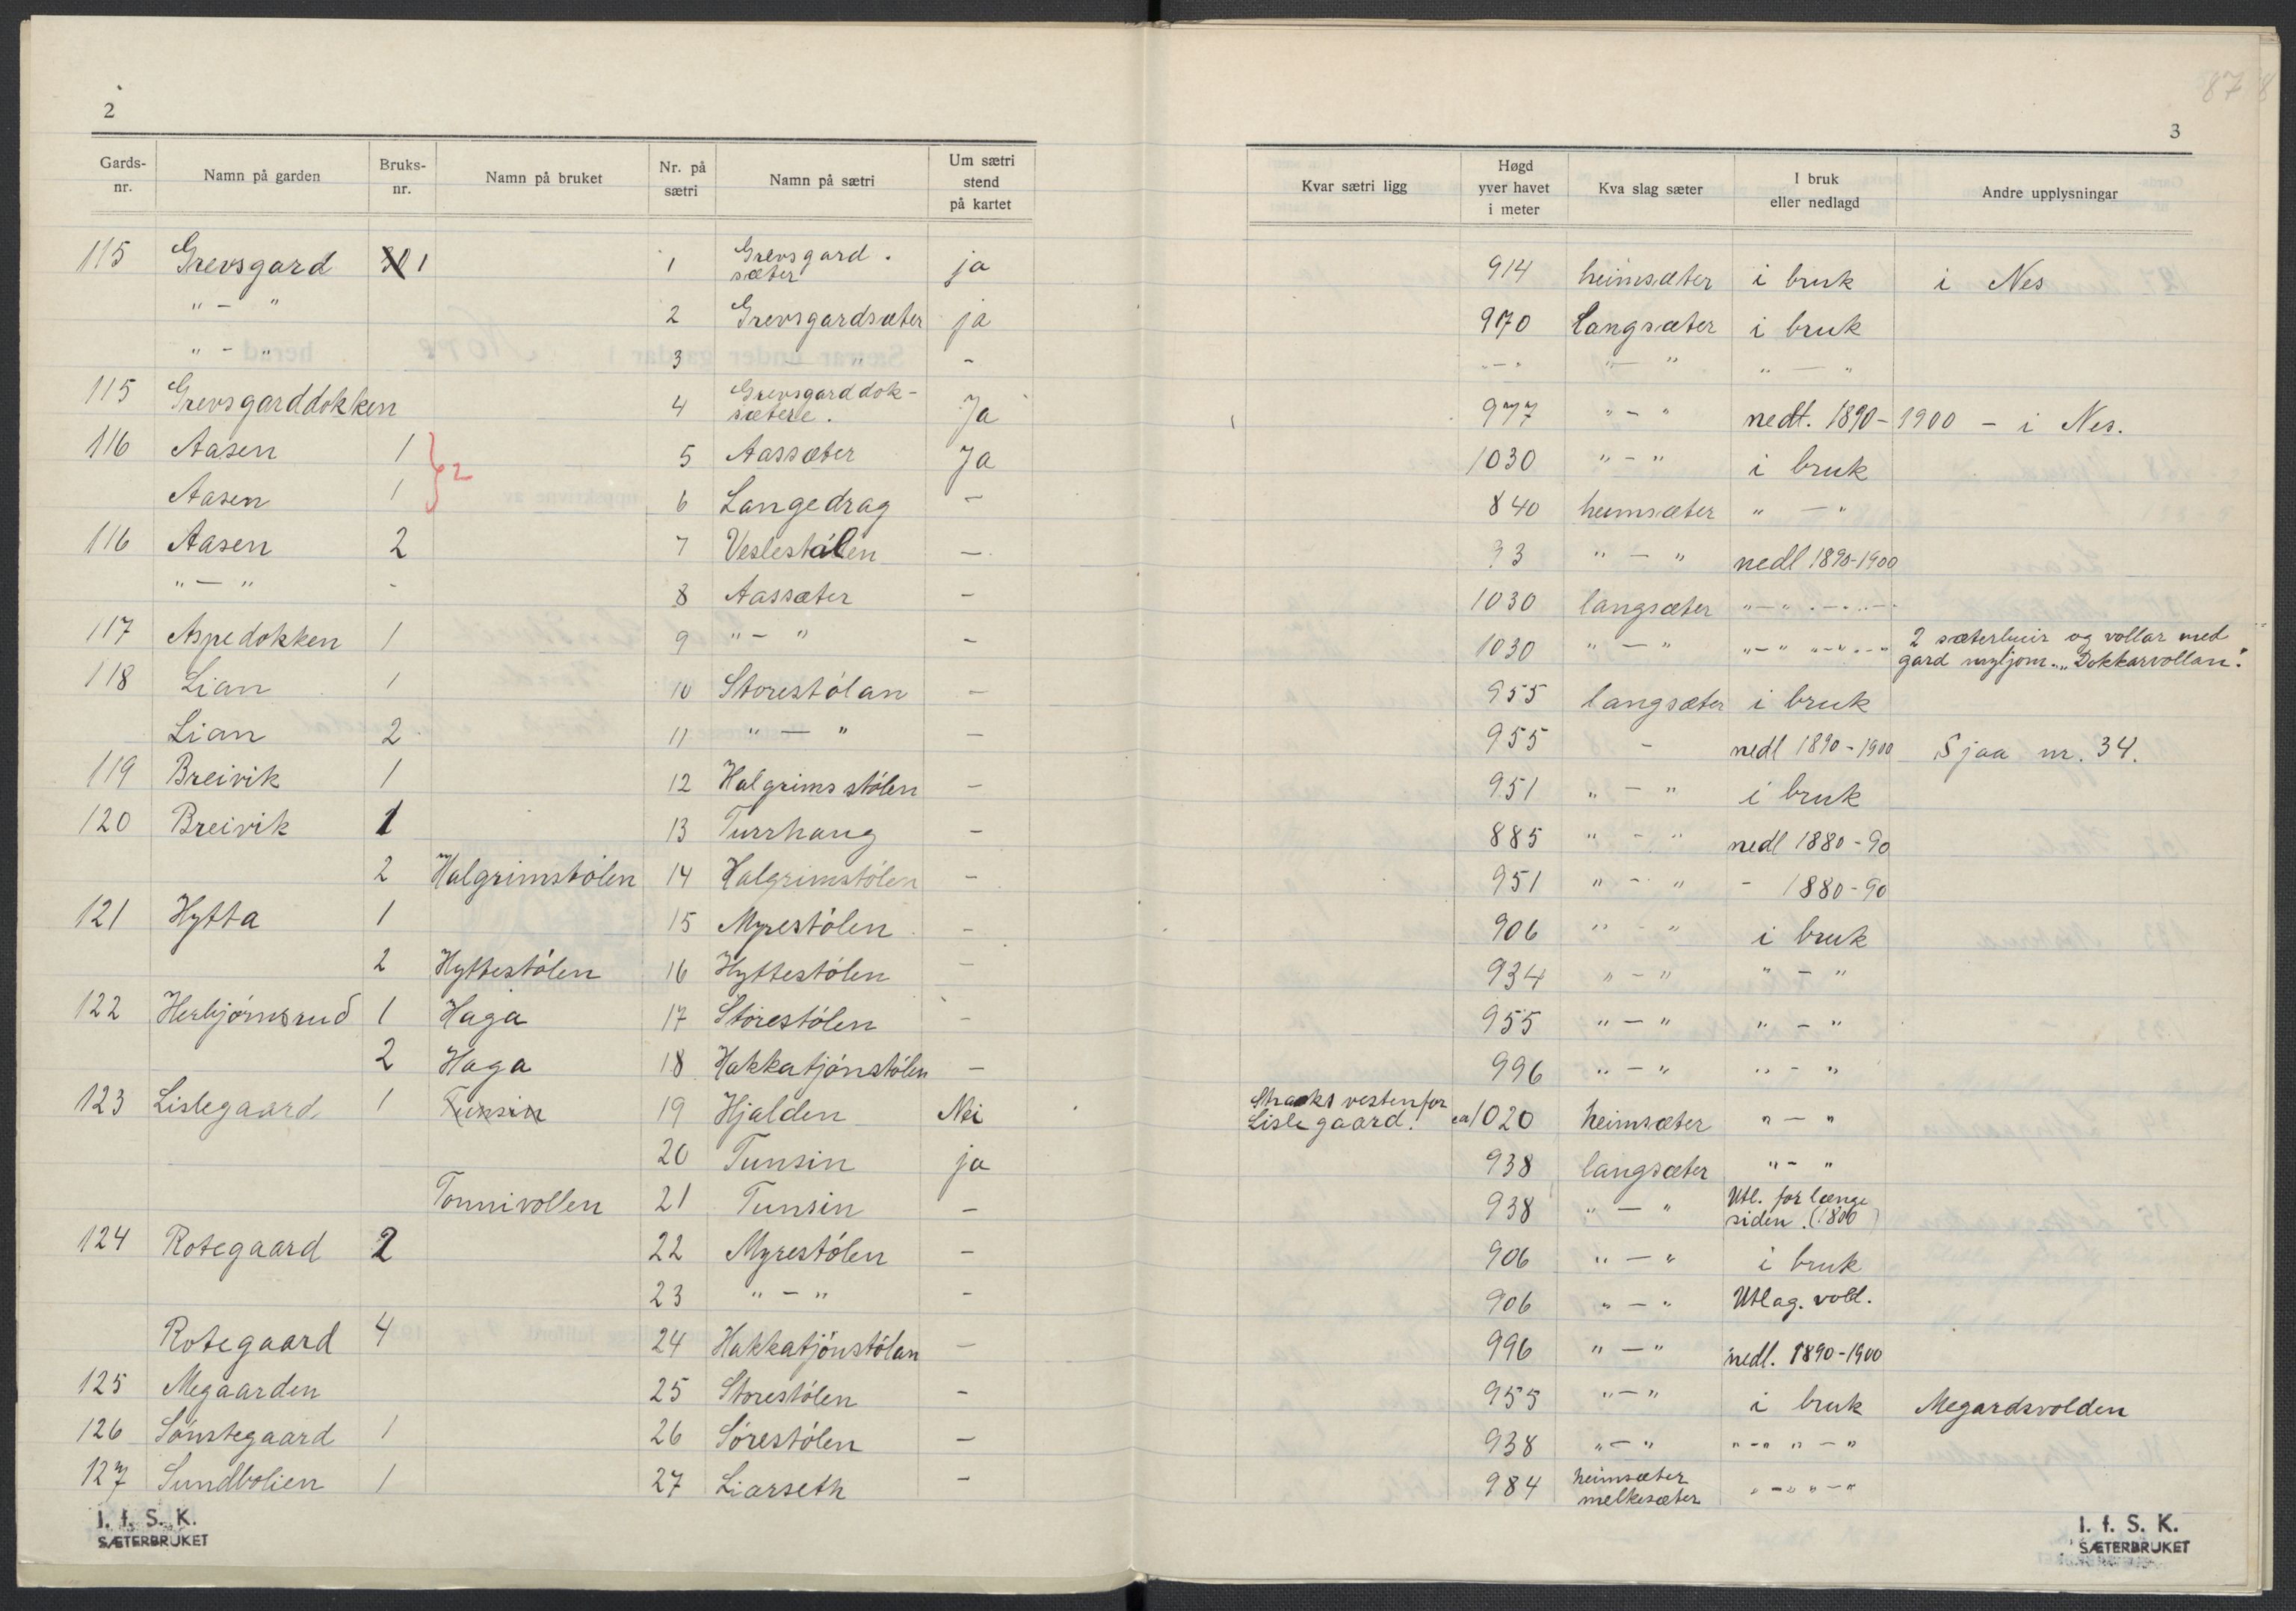 2
Gards-nr. Namn på garden Bruks-nr. Namn på bruket Nr. på sætri Namn på sætri Um sætri stend på kartet
115 Grevsgard 1 1 Grevsgard. sæter ja
" - " 2 Grevsgardsæter ja
" - " 3 - " -
115 Grevsgarddokken 4 Grevsgarddok-sætere. Ja
116 Aasen 1 5 Aassæter Ja
} 2
Aasen 1 6 Langedrag -
116 Aasen 2 7 Veslestólen -
" - " - 8 Aassæter -
117 Aspedokken 1 9 " - " -
118 Lian 1 10 Storestólan -
Lian 2 11 " - " -
119 Breivik 1 12 Halgrimsstólen -
120 Breivik 1 13 Turrhaug -
2 Halgrimstólen 14 Halgrimstólen -
121 Hytta 1 15 Myrestólen -
2 Hyttestólen 16 Hyttestólen -
122 Herbjórnsrud 1 Haga 17 Storestólen -
2 Haga 18 Hakkatjónstólen -
123 Lislegaard 1 Tunsin 19 Hjalden Nei
20 Tunsin ja
Tonnivollen 21 Tunsin -
124 Rotegaard 2 22 Myrestólen -
23 " - " -
Rotegaard 4 24 Hakkatjónstólan -
125 Megaarden 25 Storestólen -
126 Sónstegaard 1 26 Sórestólen -
127 Sundbolien 1 27 Liarseth -
I. f. S. K.
SÆTERBRUKET
87 8
3
Kvar sætri ligg Høgd yver havet i meter Kva slag sæter I bruk eller nedlagd Andre upplysningar
914 heimsæter i bruk i Nes
970 Langsæter i bruk
" - " " - " " - "
977 " - " nedt. 1890-1900 - i Nes.
1030 " - " i bruk
840 heimsæter " - "
" - " nedl 1890-1900
1030 langsæter " - " " - "
1030 " - " " - " " - " 2 sæterbuir og vollar med
gard myljom. "Dokkarvollan".
955 langsæter i bruk
955 - nedl 1890-1900 Sjaa nr. 34.
951 " - " i bruk
885 " - " nedl 1880-90
951 " - " - 1880-90
906 " - " i bruk
934 " - " " - "
955 " - " " - "
996 " - " " - "
Straks vestenfor
Lislegaard. ca 1020 heimsæter " - "
938 langsæter " - "
938 " - " Utl. for længe
siden. (1800)
906 " - " i bruk
906 " - " Utlag. vold.
996 " - " nedl. 1890-1900
955 " - " i bruk Megardsvolden
938 " - " " - " " - "
984 heimsæter
melkesæter " - " " - "
I. f. S. K.
SÆTERBRUKET